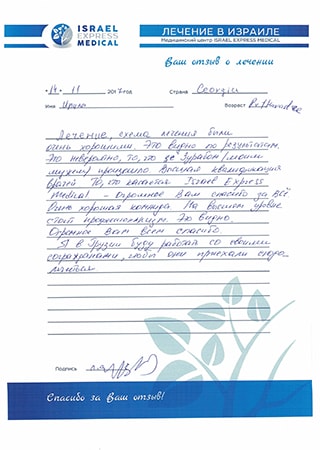 ISRAEL
EXPRESS
MEDICAL
ЛЕЧЕНИЕ В ИЗРАИЛЕ
Медицинский центр ISRAEL EXPRESS MEDICAL
Ваш отзыв о лечении
"14" 11 2017 год Страна Георгия
Имя Ирина Возраст
Лечение, схема лечения были
очень хорошими. Это видно по результатам.
Это невероятно, то, что с
мужем) произошло Высшая квалификация
врачей То, что касается Israel Express
Medical - огромное Вам спасибо за всё
Очень хорошая команда На высшем уровне
стоит профессионализм. Это видно.
Огромное Вам всем спасибо.
Я в Грузии буду работать со своими
чтобы они приехали сюда
лечиться
Подпись
Спасибо за Ваш отзыв!